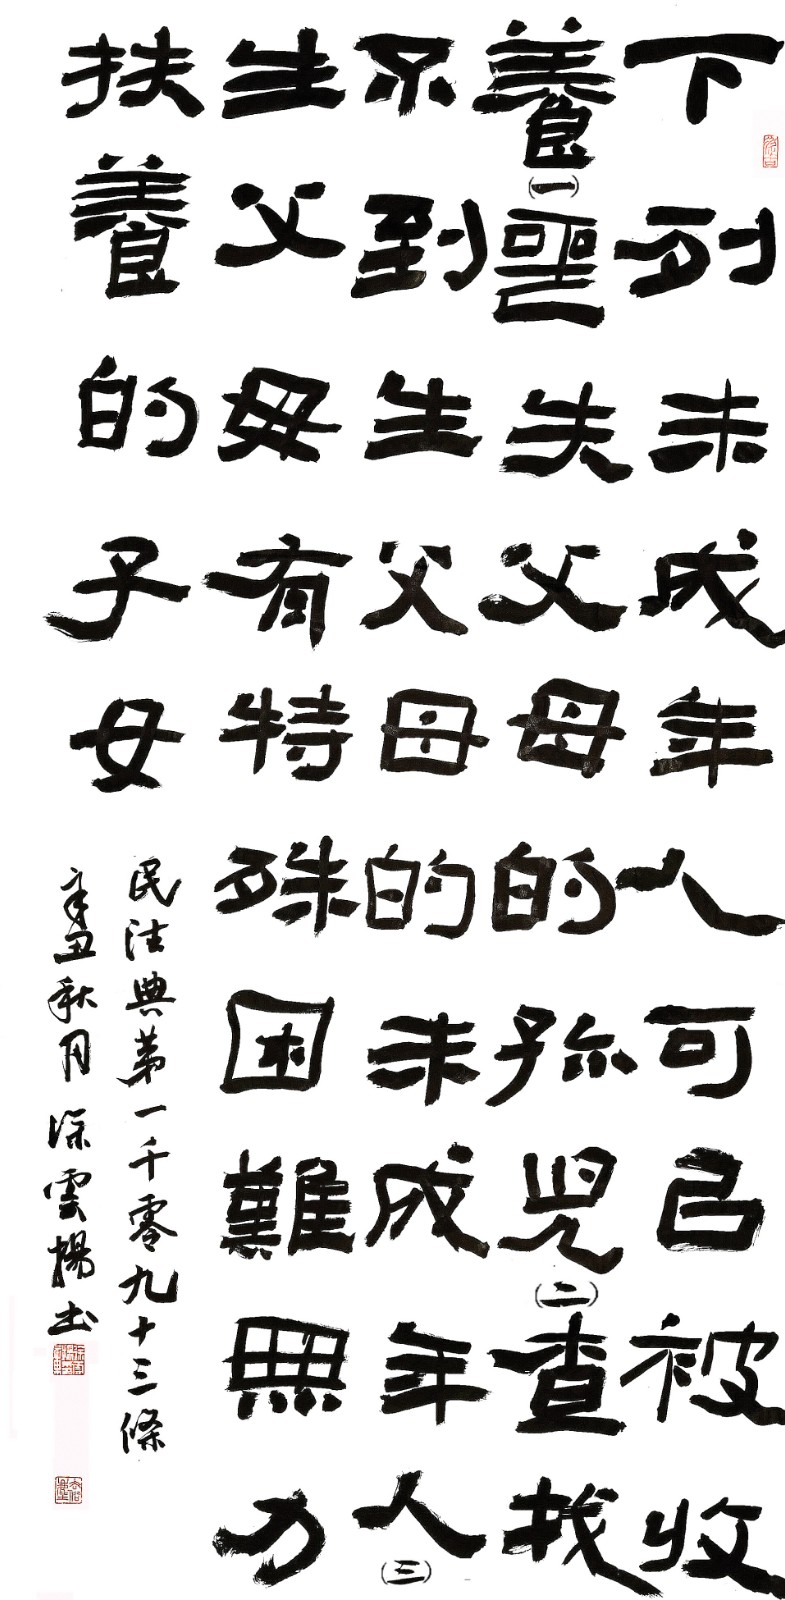 下列未成年人可㠯被收
養(一)喪失父母的孤兒(二)查找
不到生父母的未成年人(三)
生父母有特殊困難無力
扶養的子女
民法典第一千零九十三條
辛丑秋月雲揚书